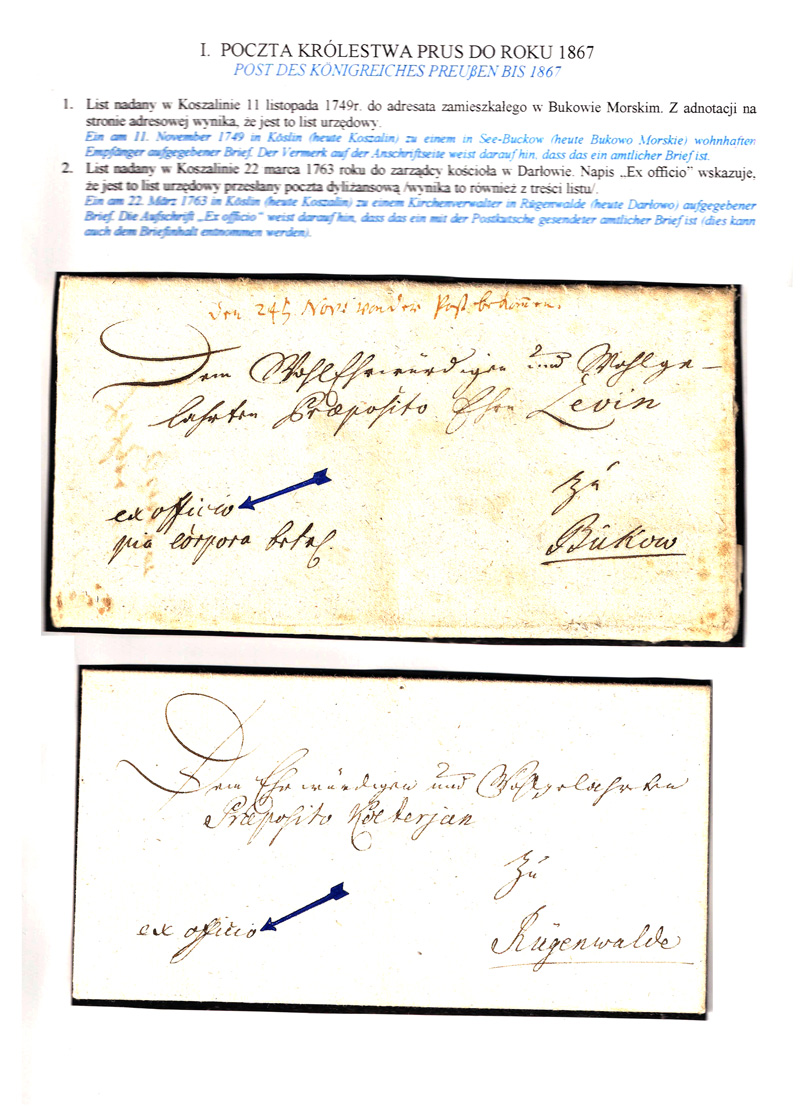 I. POCZTA KRÓLESTWA PRUS DO ROKU 1867
POST DES KÖNIGREICHES PREUßEN BIS 1867
1. List nadany w Koszalinie 11 listopada 1749r. do adresata zamieszkałego w Bukowie Morskim. Z adnotacji na
stronie adresowej wynika, że jest to list urzędowy.
Ein am 11. November 1749 in Köslin (heute Koszalin) zu einem in See-Buckow (heute Bukowo Morskie) wohnhaften
Empfänger aufgegebener Brief. Der Vermerk auf der Anschriftseite weist darauf hin, dass das ein amtlicher Brief ist.
2. List nadany w Koszalinie 22 marca 1763 roku do zarządcy kościoła w Darłowie. Napis „Ex officio” wskazuje,
że jest to list urzędowy przesłany poczta dyliżansową /wynika to również z treści listu/.
Ein am 22. März 1763 in Köslin (heute Koszalin) zu einem Kirchenverwalter in Rügenwalde (heute Darłowo) aufgegebener
Brief. Die Aufschrift „Ex officio” weist darauf hin, dass das ein mit der Postkutsche gesendeter amtlicher Brief ist (dies kann
auch dem Briefinhalt entnommen werden).
den 24t Nov: von der Post bekom̅en.
Dem WohlEhrwürdigen und Wohlge-
lahrten Præposito Ehrn Levin
zu
ex officio
pia corpora betr.
Bukow
Dem Ehrwürdigen und Wohlgelahrten
Præposito Koeterjan
zu
ex officio
Rügenwalde